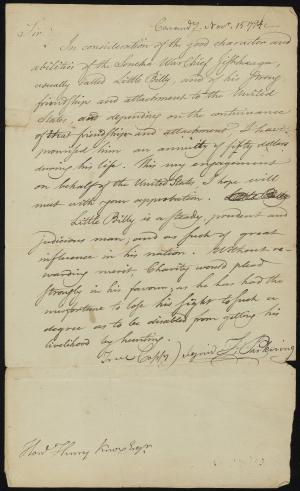 Canand.ª Nov.r 15 1794
Sir,
In consideration of the good character and
abilities of the Seneka War Chief
usually called Little Billy, and of his strong
friendship and attachment to the United
States, and depending on the continuance
of that friendship and attachment, I have
promised him an annuity of fifty dollars
during his life. This my engagement
on behalf of the United States, I hope will
meet with your approbation.
Little Billy is a steady, prudent and
judicious man, and as such of great
influence in his nation. Without re-
warding merit, Charity would plead
strongly in his favour; as he has had the
misfortune to lose his sight to such a
degree as to be disabled from getting his
livelihood by hunting.
True Copy) signed T. Pickering
Hon.e Henry Knox Esq.r